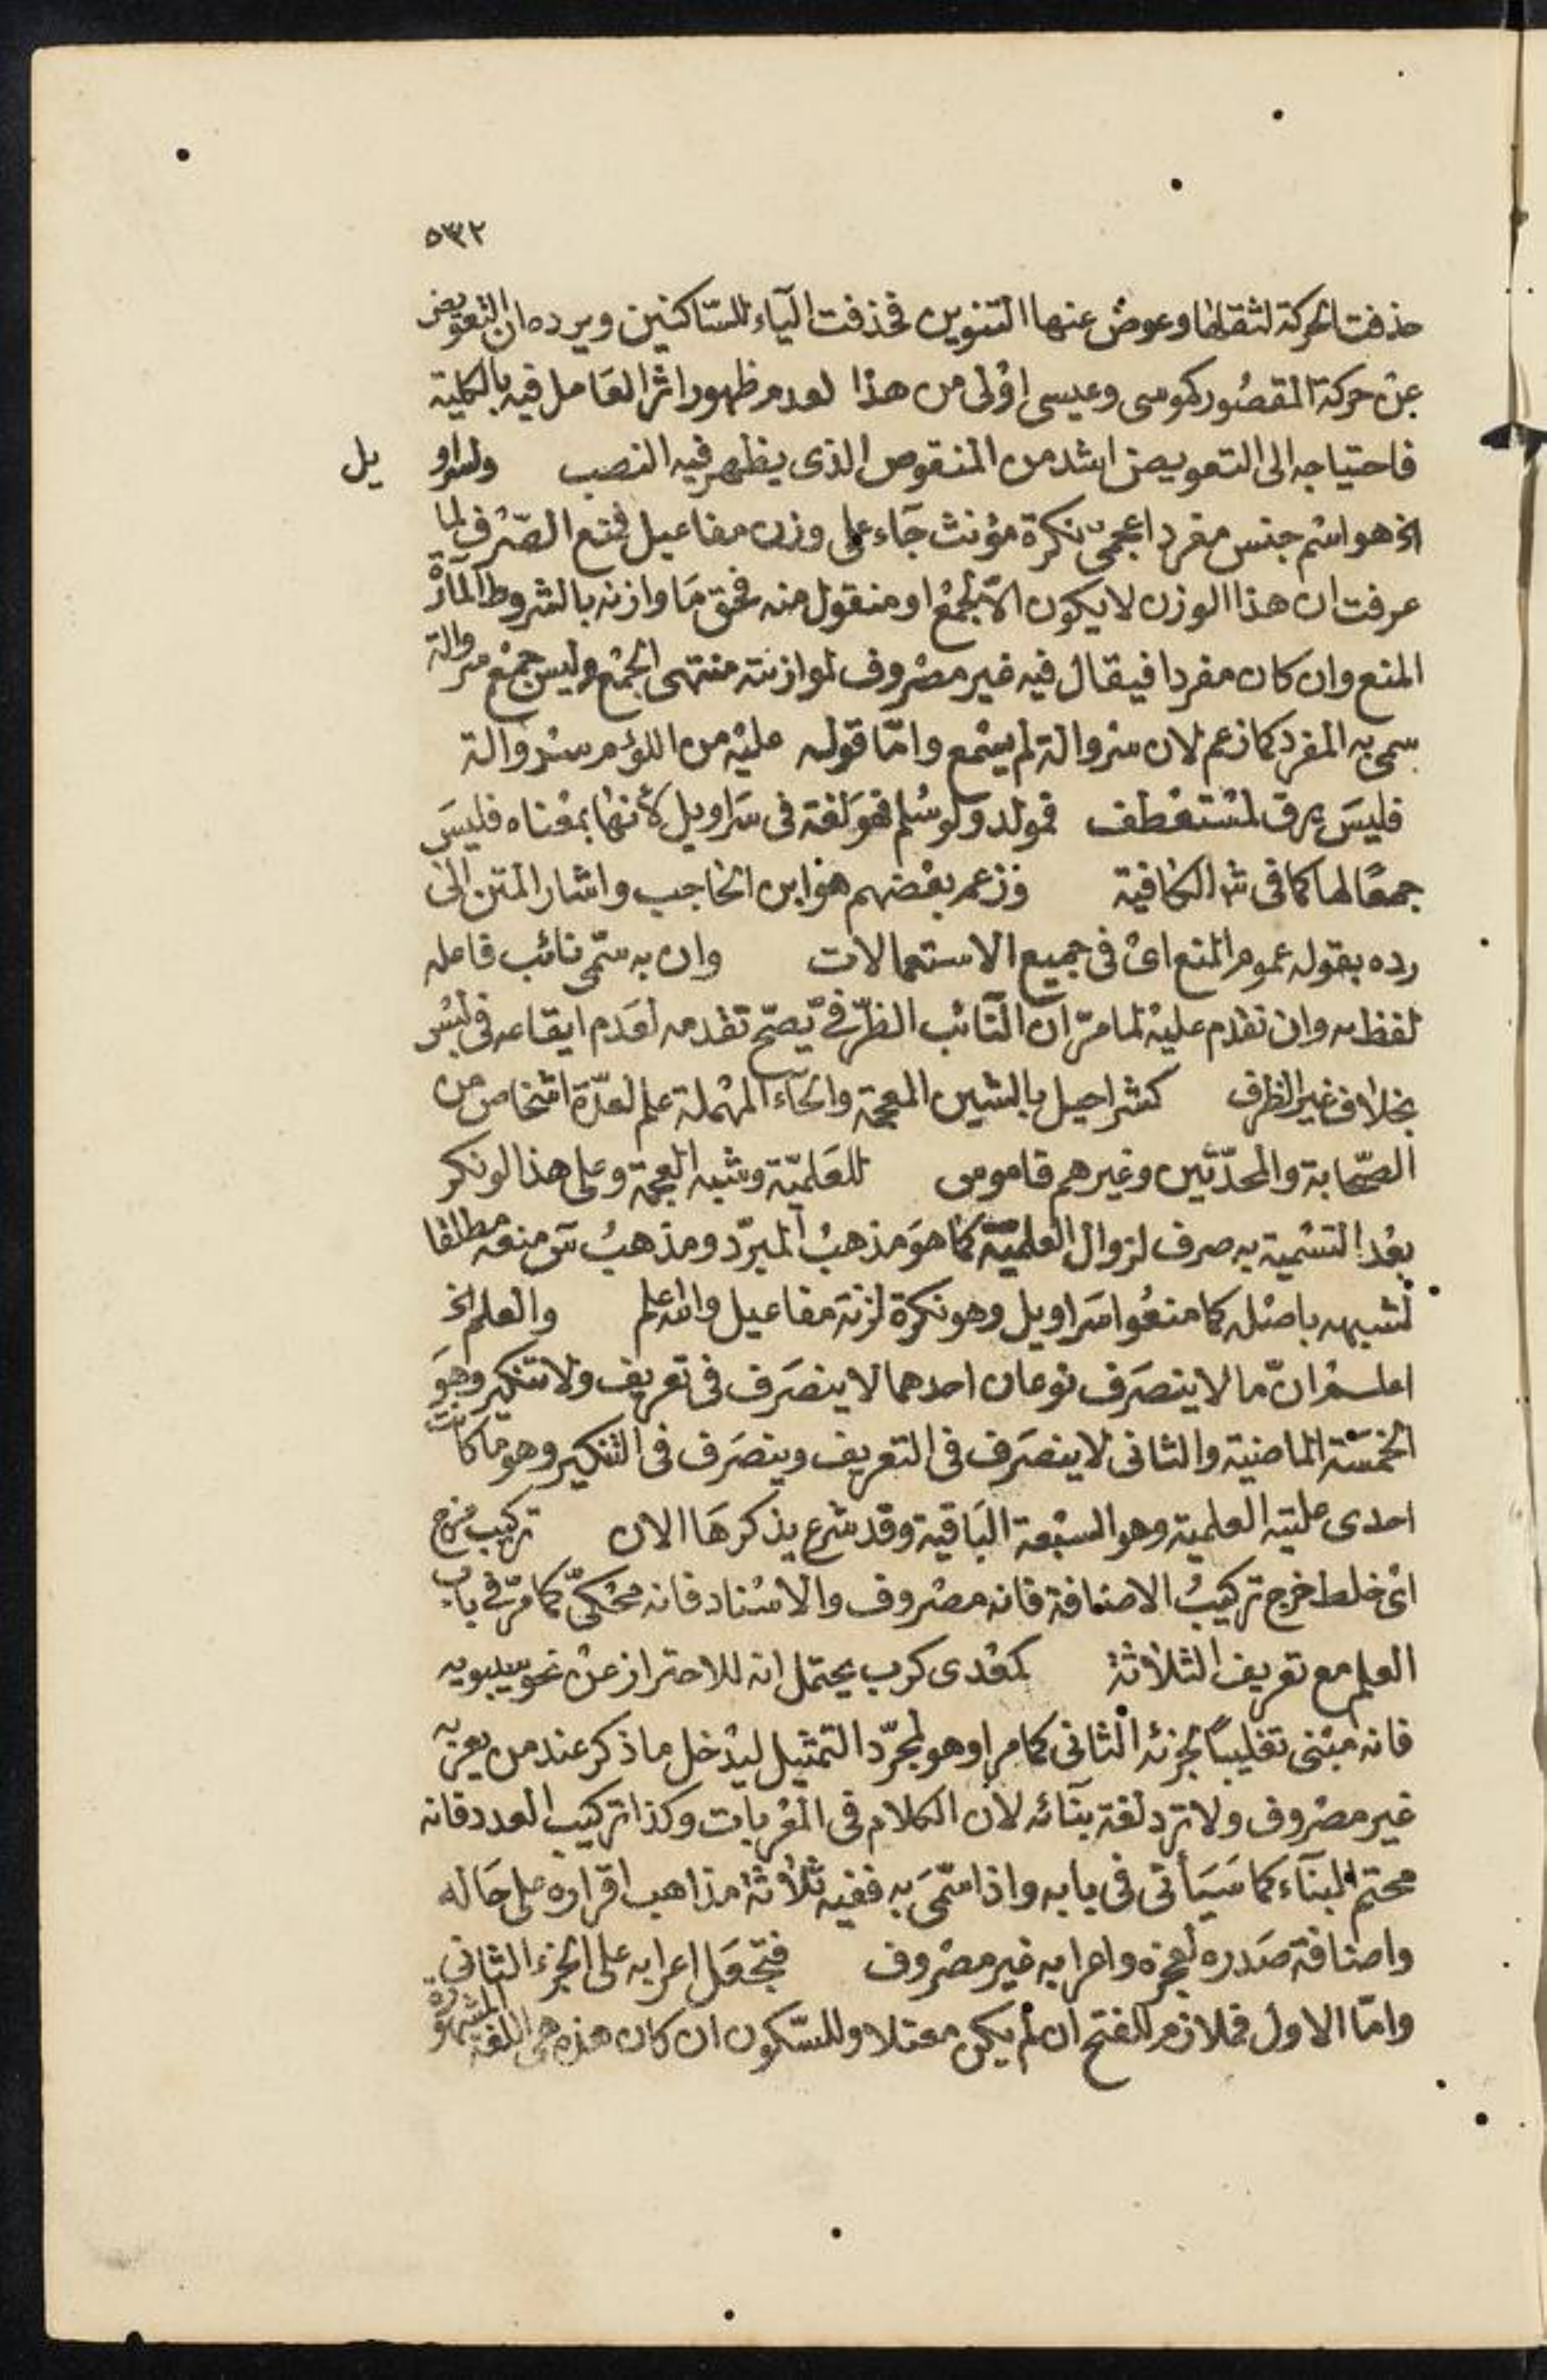 ٥٣٢
حذفت الحركة لثقلها وعوض عنها التنوين فحذفت الياء للساكنين ويرده ان التعويض
عن حركة المقصور كموسى وعيسى اولى من هذا لعدم ظهور اثر العامل فيه بالكلية
فاحتياجه الى التعويض اشد من المنقوص الذى يظهر فيه النصب ولسراويل
الخ هو اسم جنس مفرد اعجمى نكرة مؤنث جاء على وزن مفاعيل فمنع الصرف لما
عرفت ان هذا الوزن لا يكون الا لجمع او منقول منه فحق ما وازنه بالشروط المارة
المنع وان كان مفردا فيقال فيه غير مصروف لموازنته منتهى الجمع وليس جمع سروالة
سمى به المفرد كما زعم لان سروالة لم يسمع واما قوله عليه من اللؤم سروالة
فليس يرق لمستعطف فمولد ولو سلم فهو لغة فى سراويل لأنها بمعناه فليس
جمعًا لها كما فى ش الكافية وزعم بعضهم هو ابن الحاجب واشار المتن الى
رده بقوله عموم المنع اى فى جميع الاستعمالات وان به سمى نائب فاعله
لفظ به وان تقدم عليه لما مر ان النائب الظرفى يصح تقدمه لعدم ايقاعه فى لبس
بخلاف غير الظرف كشراحيل بالشين المعجمة والحاء المهملة علم لعدة اشخاص من
الصحابة والمحدثين وغيرهم قاموس للعلمية وشبه العجمة وعلى هذا لو نكر
بعد التسمية به صرف لزوال العلمية كما هو مذهب المبرد ومذهب س منعه مطلقا
لشبهه باصله كما منعوا سراويل وهو نكرة لزنة مفاعيل والله اعلم والعلم الخ
اعلم ان ما لا ينصرف نوعان احدهما لا ينصرف فى تعريف ولا تنكير وهو
الخمسة الماضية والثانى لا ينصرف فى التعريف وينصرف فى التنكير وهو ما كانت
احدى علتيه العلمية وهو السبعة الباقية وقد شرع يذكرها الان تركيب مزج
اى خلط خرج تركيب الاضافة فانه مصروف والاسناد فانه محكى كما مر فى باب
العلم مع تعريف الثلاثة كمعدى كرب يحتمل انه للاحتراز عن نحو سيبويه
فانه مبنى تغليبًا لجزئه الثانى كما مر او هو لمجرد التمثيل ليدخل ما ذكر عند من يعربه
غير مصروف ولا ترد لغة بنائه لان الكلام فى المعربات وكذا تركيب العدد فانه
محتم البناء كما سيأتى فى بابه واذا سمى به ففيه ثلاثة مذاهب اقراره على حاله
واضافة صدره لعجزه واعرابه غير مصروف فتجعل اعرابه على الجزء الثانى
واما الاول فملازم للفتح ان لم يكن معتلا وللسكون ان كان هذه هى اللغة المشهورة